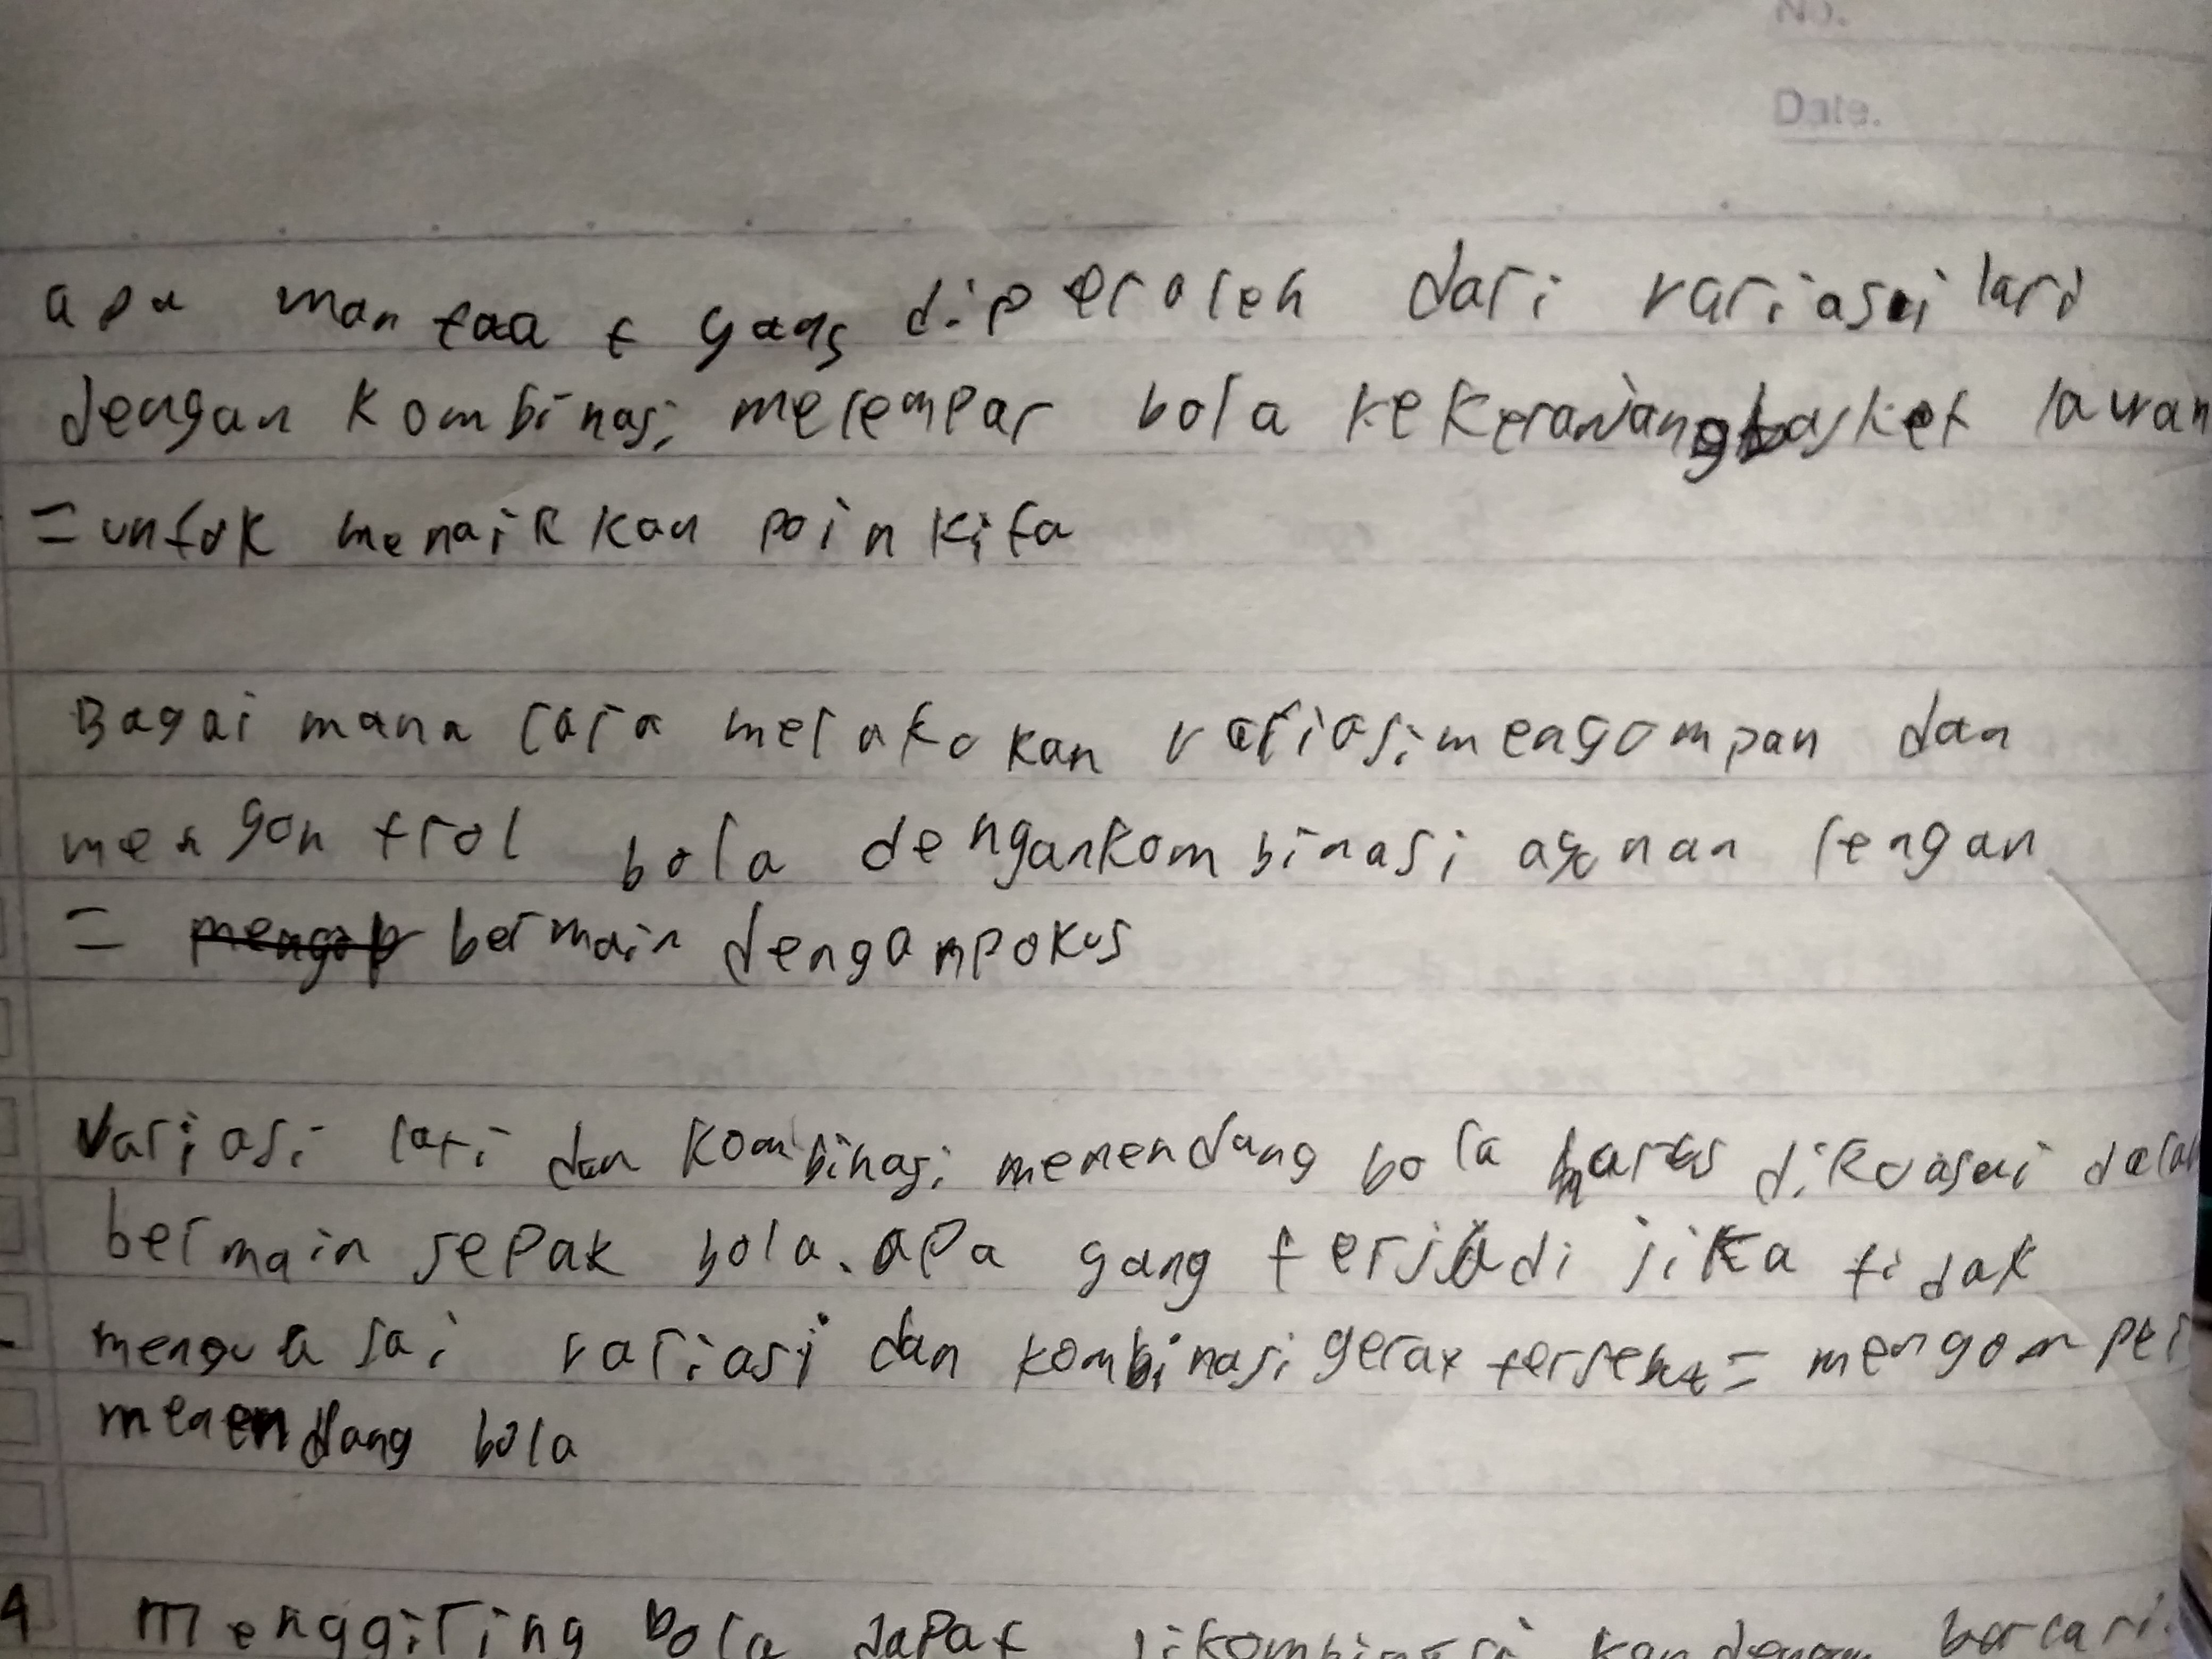 No.
Date.
apa manfaat yang diperoleh dari variasi lari
dengan kombinasi melempar bola kekeranjang basket lawan
= untuk menaikkan poin kita
Bagai mana cara melakukan variasi mengompan dan
mengontrol bola dengan kombinasi ayunan lengan
= mengop bermain dengan pokus
Variasi lari dan kombinasi menendang bola harus dikuasai dalam
bermain sepak bola. apa yang terjadi jika tidak
menguasai variasi dan kombinasi gerak tersebut = mengomper
menendang bola
4 Menggiring bola dapat dikombinasi kan dengan berlari.